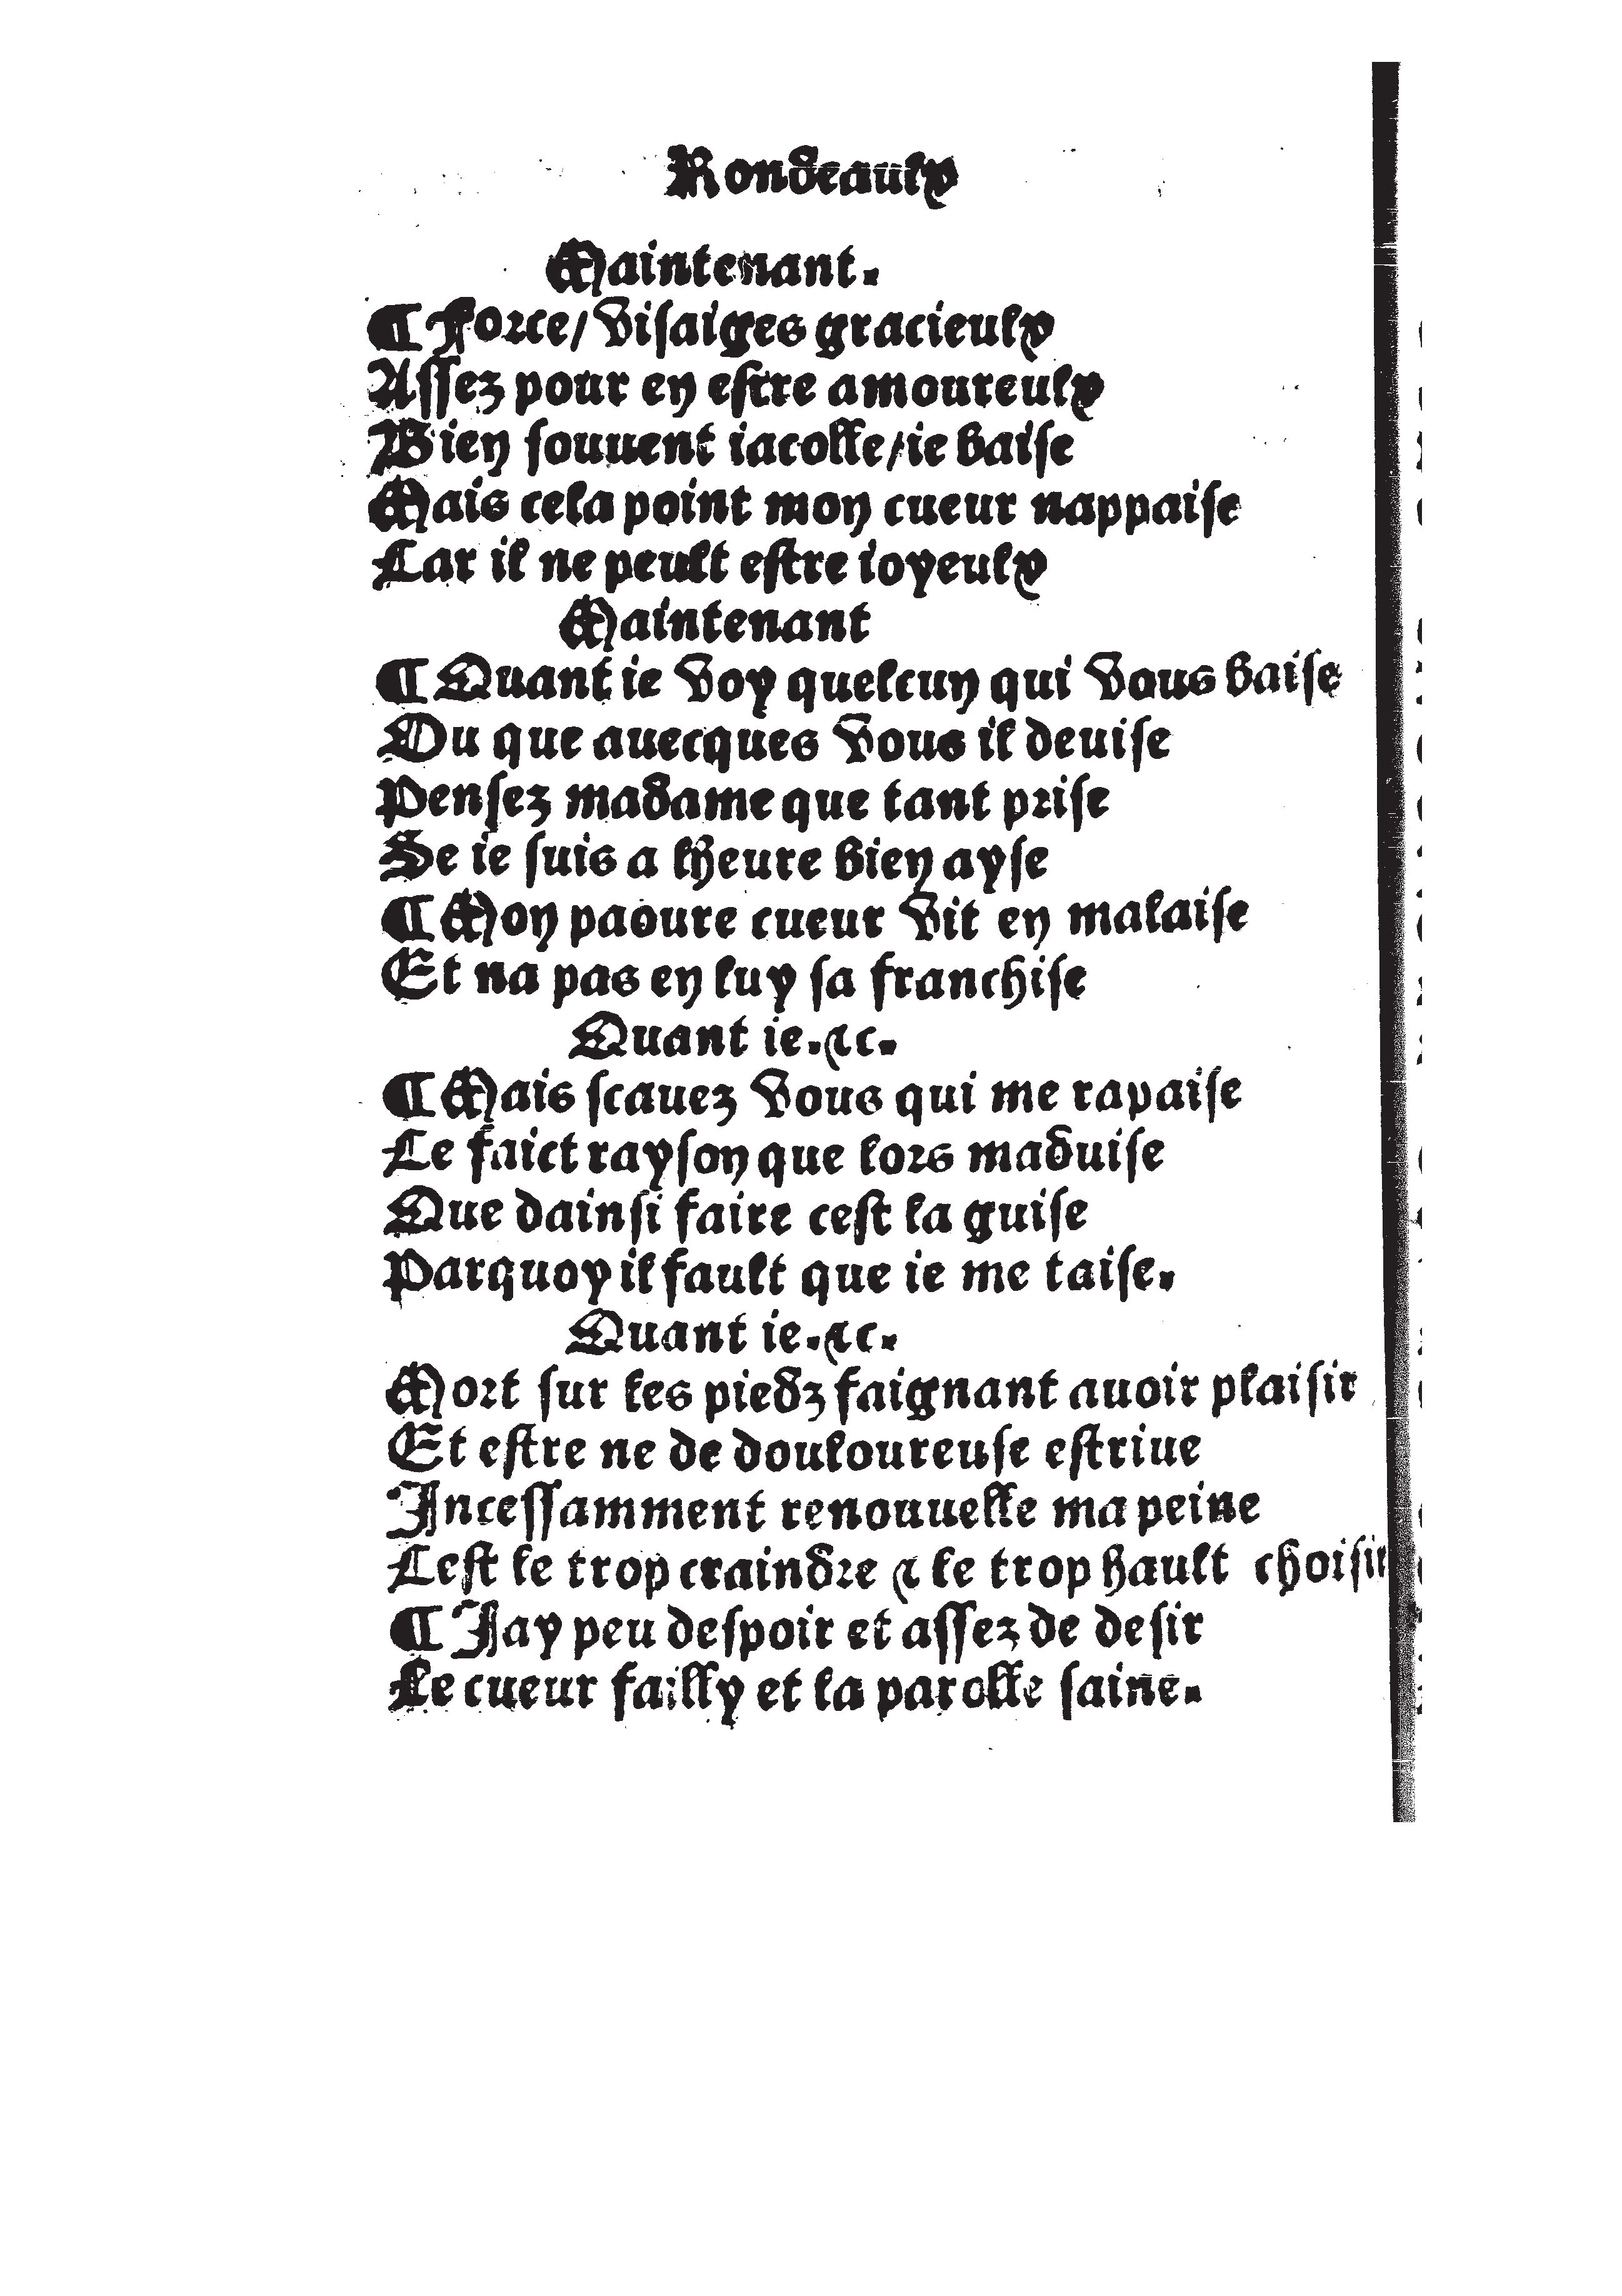 Rondeaulx
Maintenant.
¶ Force/ visaiges gracieulx
Assez pour en estre amoureulx
Bien souuent iacolle/ie baise
Mais cela point mon cueur nappaise
Car il ne peult estre ioyeulx
Maintenant
¶ Quant ie voy quelcun qui vous baise
Ou que auecques vous il deuise
Pensez madame que tant prise
Se ie suis a lheure bien ayse
¶ Mon paoure cueur vit en malaise
Et na pas en luy sa franchise
Quant ie.⁊c.
¶ Mais scauez vous qui me rapaise
Ce faict rayson que lors maduise
Que dainsi faire cest la guise
Parquoy il fault que ie me taise.
Quant ie.⁊c.
Mort sur les piedz faignant auoir plaisir
Et estre ne de douloureuse estriue
Incessamment renouuelle ma peine
Cest le trop craindre ⁊ le trop hault choisir
¶ Jay peu despoir et assez de desir
Le cueur failly et la parolle saine.